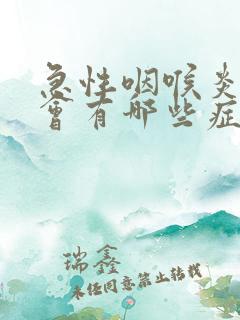 急性咽喉炎
会有哪些症
瑞鑫
未经同意禁止转载